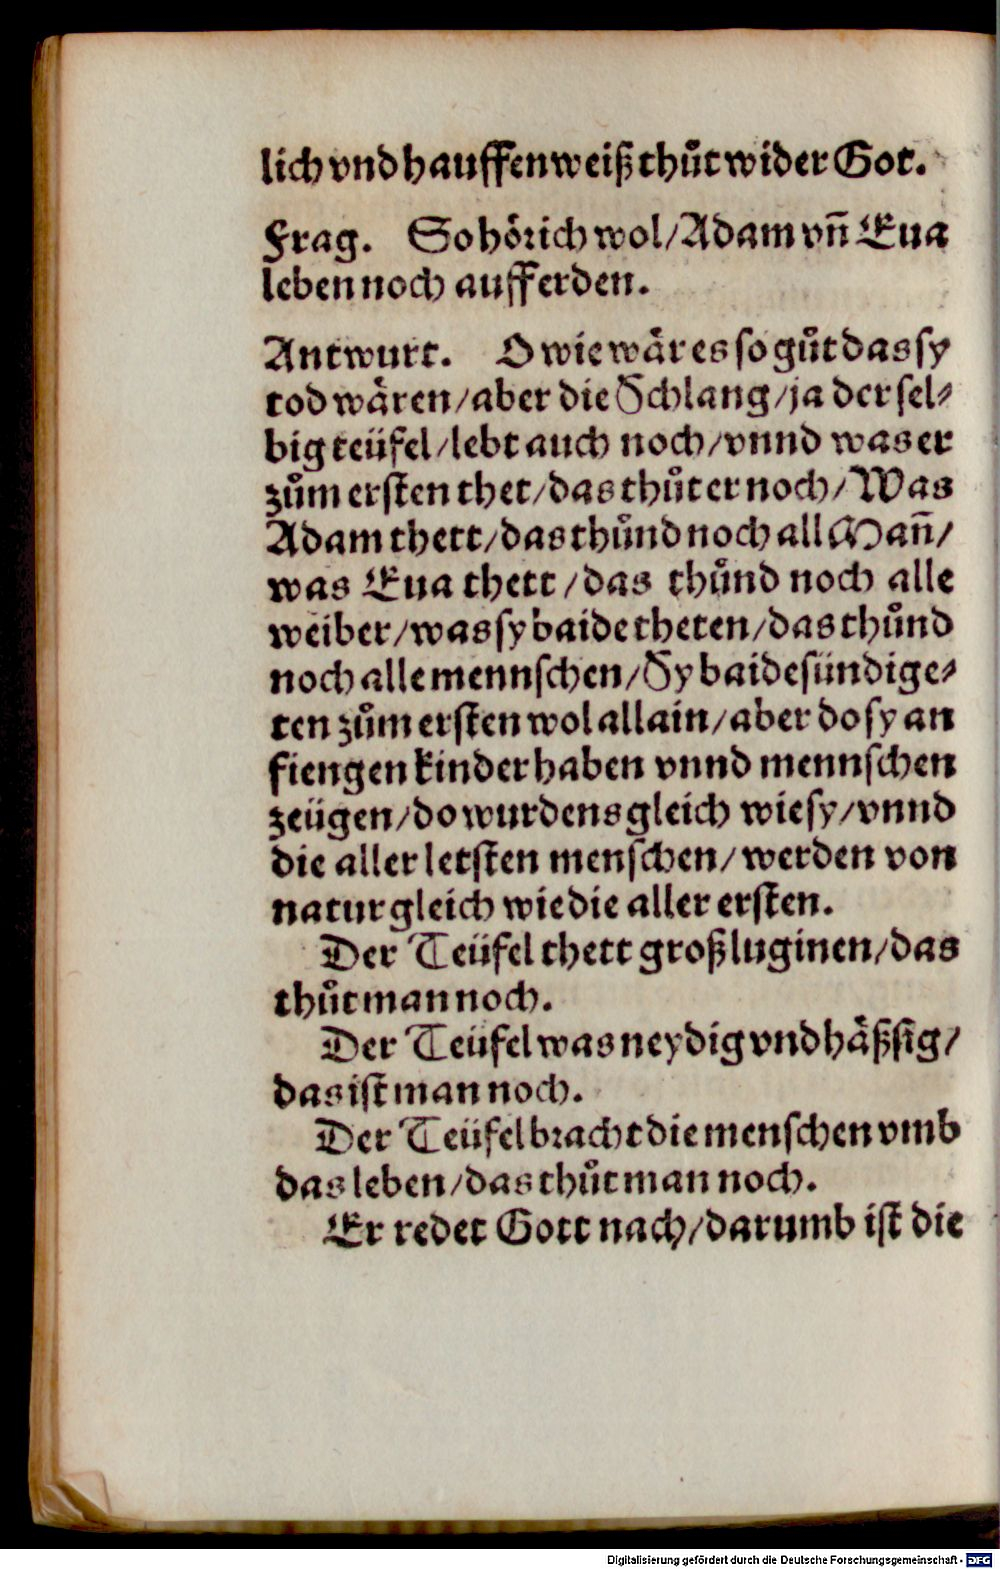 lich vnd hauffenweiß thůt wider Got.
Frag. So hoͤr ich wol/ Adam vn̄ Eua
leben noch auff erden.
Antwurt. O wie waͤr es so gůt das sy
tod waͤren/ aber die Schlang/ ja der sel⸗
big teüfel/ lebt auch noch/ vnnd was er
zům ersten thet/ das thůt er noch/ Was
Adam thett/ das thůnd noch all Man̄/
was Eua thett/ das thůnd noch alle
weiber/ was sy baide theten/ das thůnd
noch alle mennschen/ Sy baide sündige⸗
ten zům ersten wol allain/ aber do sy an
fiengen kinder haben vnnd mennschen
zeügen/ do wurdens gleich wie sy/ vnnd
die aller letsten menschen/ werden von
natur gleich wie die aller ersten.
Der Teüfel thett groß luginen/ das
thůt man noch.
Der Teüfel was neydig vnd haͤßsig/
das ist man noch.
Der Teüfel bracht die menschen vmb
das leben/ das thůt man noch.
Er redet Gott nach/ darumb ist die
Digitalisierung gefördert durch die Deutsche Forschungsgemeinschaft - DFG